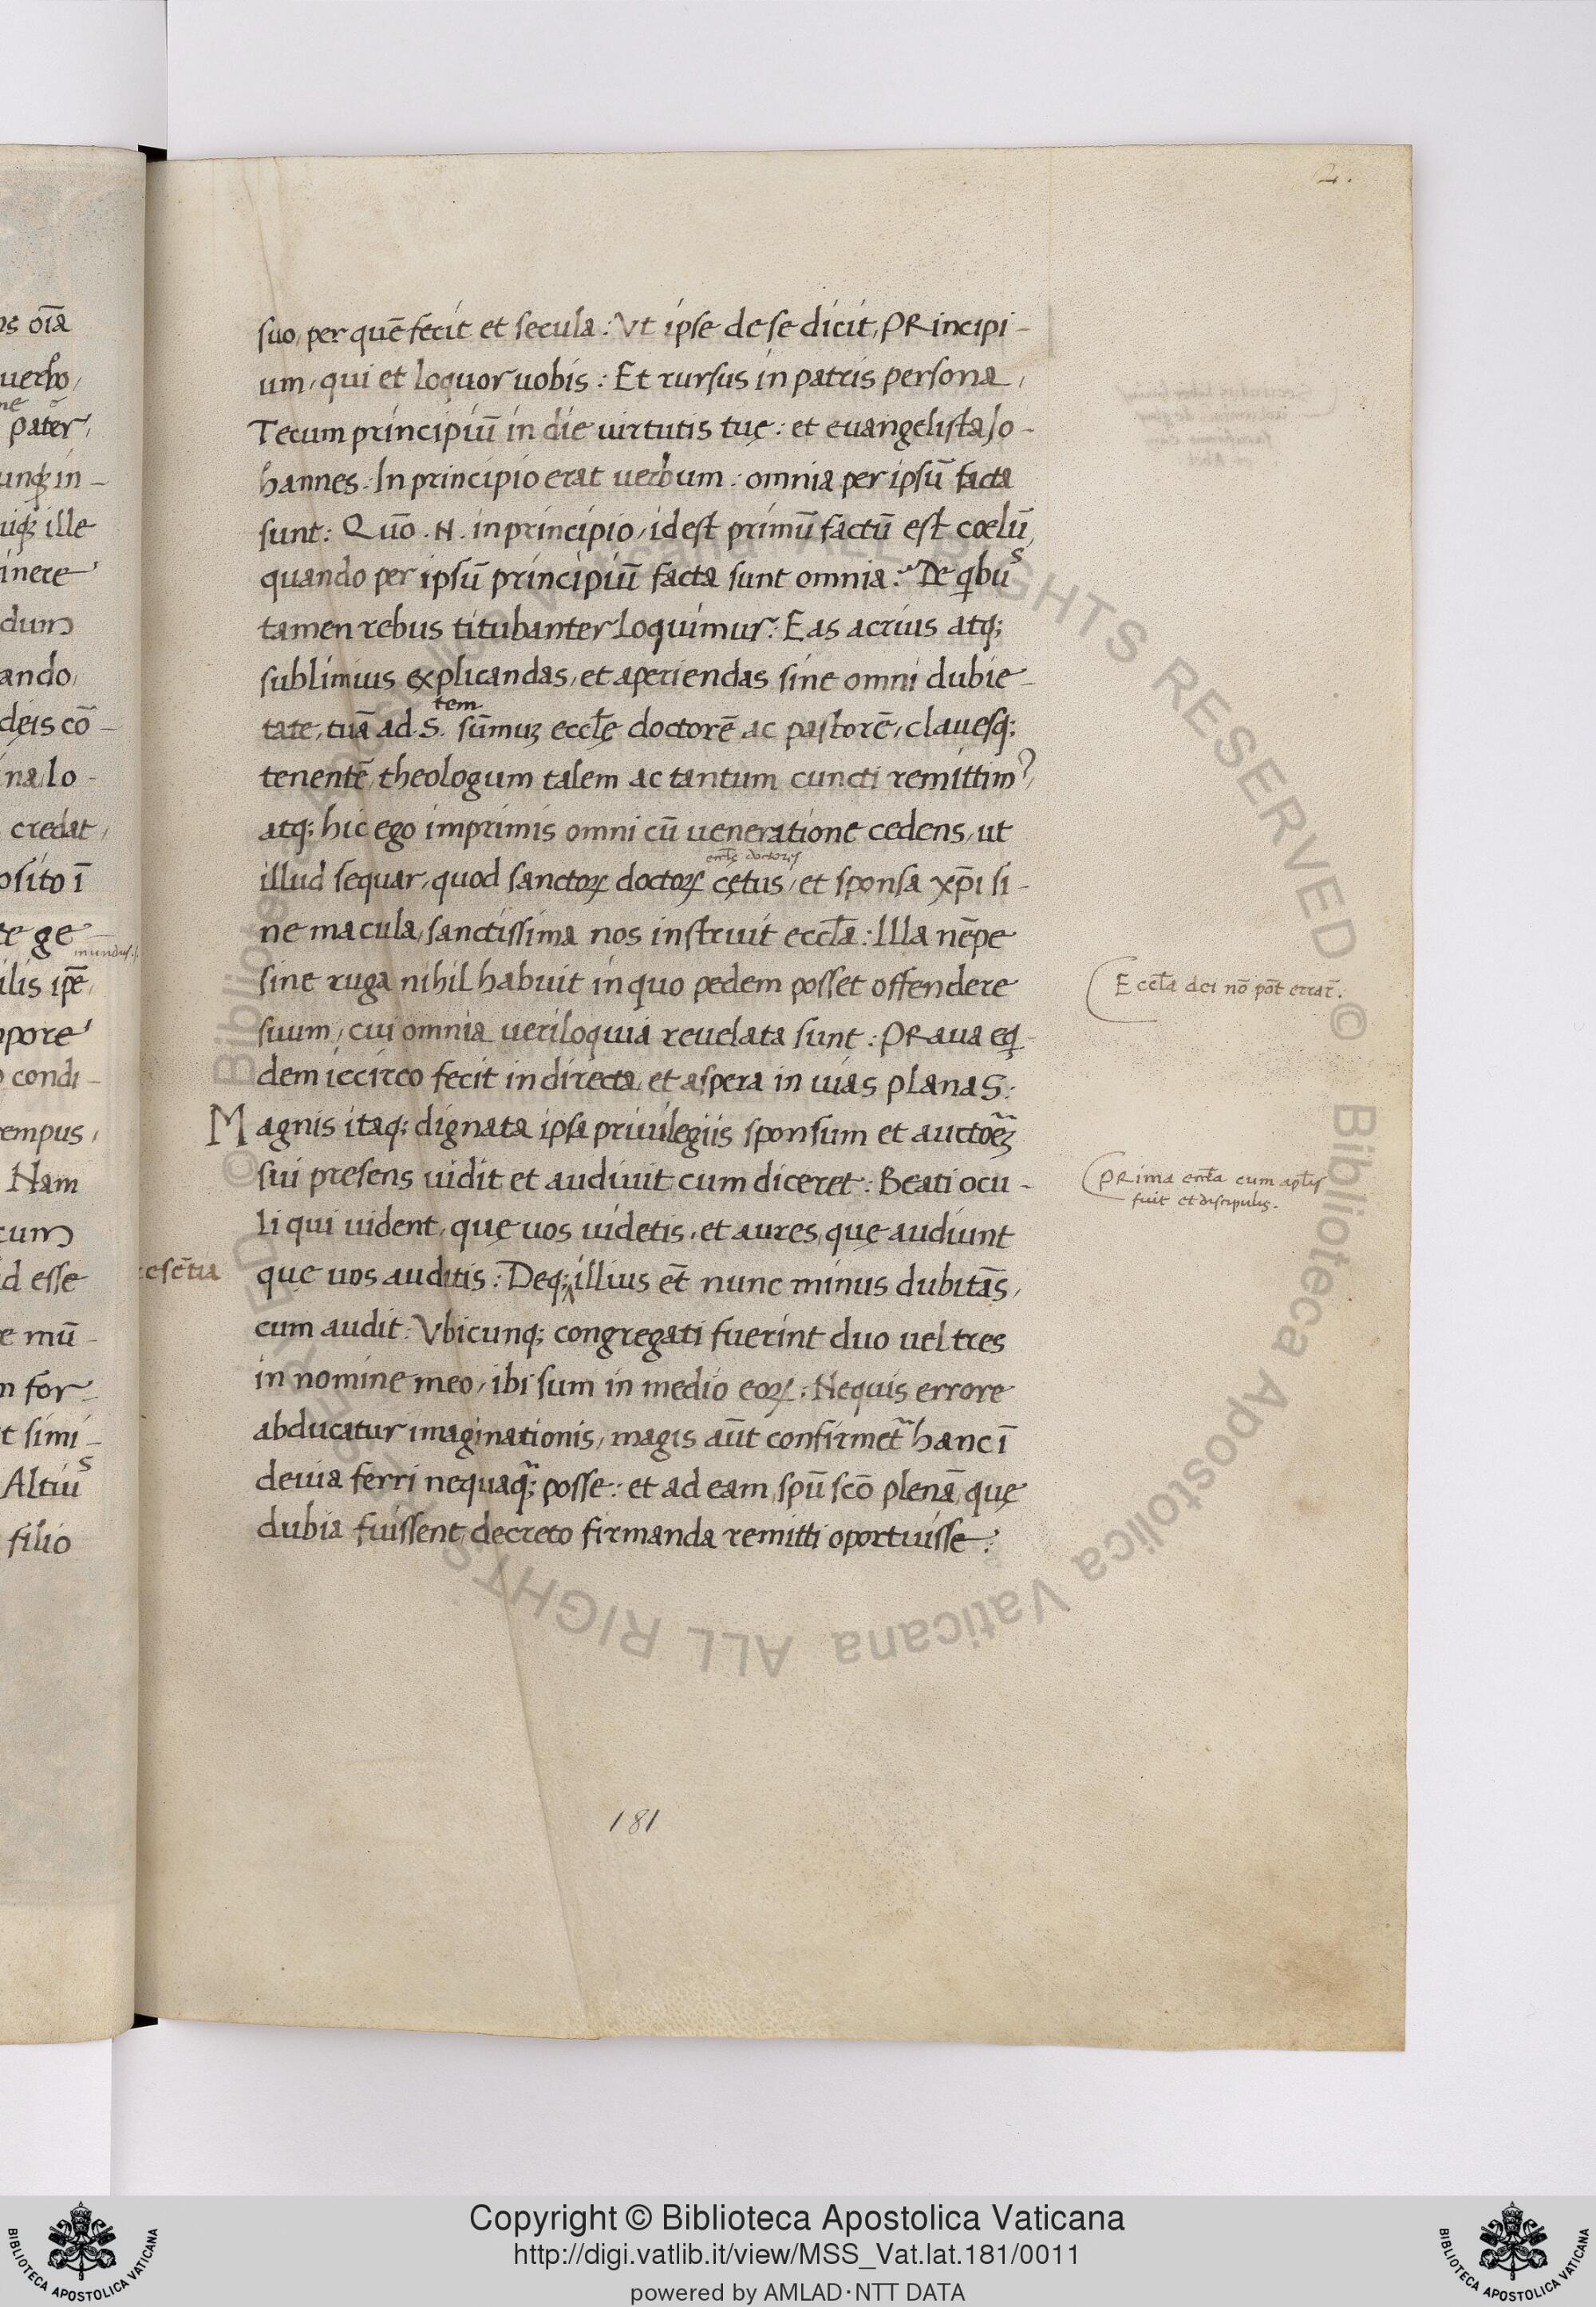 2.
suo, per quē fecit et secula: Vt ipse de se dicit, PRincipi-
um, qui et loquor uobis: Et rursus in patris persona,
Tecum principiū in die uirtutis tuę: et euangelista Jo-
hannes: In principio erat uerbum: omnia per ipsū facta
sunt: Quō .N. in principio, id est primū factū est cœlū,
quando per ipsū principiū facta sunt omnia: De qibuˢ
tamen rebus titubanter loquimur: Eas acrius atq;
sublimius explicandas, et aperiendas sine omni dubie-
tate, tuā ad .S.tem sūmuʒ eccl̄ę doctorē ac pastorē, clauesq;
tenentē, theologum talem ac tantum cuncti remittimꝰ,
atq; hic ego imprimis omni cū ueneratione cedens, ut
illud sequar, quod sanctoꝝ doctoꝝ cętus, et sponsa xp̄i si-
ne macula, sanctissima nos instruit eccl̄a: Illa nēpe
sine ruga nihil habuit in quo pedem posset offendere
suum, cui omnia ueriloquia reuelata sunt: PRaua eqi-
dem iccirco fecit in directa, et aspera in uias planas:
Magnis itaq; dignata ipsa priuilegiis sponsum et auctoēʒ
sui presens uidit et audiuit cum diceret: Beati ocu-
li qui uident, quę uos uidetis, et aures, quę audiunt
quę uos auditis: Deq; illius et̄ nunc minus dubitās,
cum audit: Vbicunq; congregati fuerint duo uel tres
in nomine meo, ibi sum in medio eoꝝ: Nequis errore
abducatur imaginationis, magis aūt confirmet̄ hanc ī
deuia ferri nequaq̄; posse: et ad eam, spū scō plenā, quę
dubia fuissent, decreto firmanda remitti oportuisse:
Eccl̄a dei nō pōt errar̄.
PRima eccl̄a cum apl̄is
fuit et discipulis.
esētia
181
oīa
uerbo,
pater,
unqʒ in-
uiqʒ ille
inere
dum
ando,
deis cō-
na, lo-
credat,
osito ī
te ge-
mundus
ilis ip̄e,
pore
condi-
empus,
Nam
cum
id esse
e mū-
n for-
t simi-
Altiuˢ
filio
Copyright © Biblioteca Apostolica Vaticana
http://digi.vatlib.it/view/MSS_Vat.lat.181/0011
powered by AMLAD·NTT DATA
BIBLIOTECA APOSTOLICA VATICANA
BIBLIOTECA APOSTOLICA VATICANA
© Biblioteca Apostolica Vaticana ALL RIGHTS RESERVED © Biblioteca Apostolica Vaticana ALL RIGHTS RESERVED